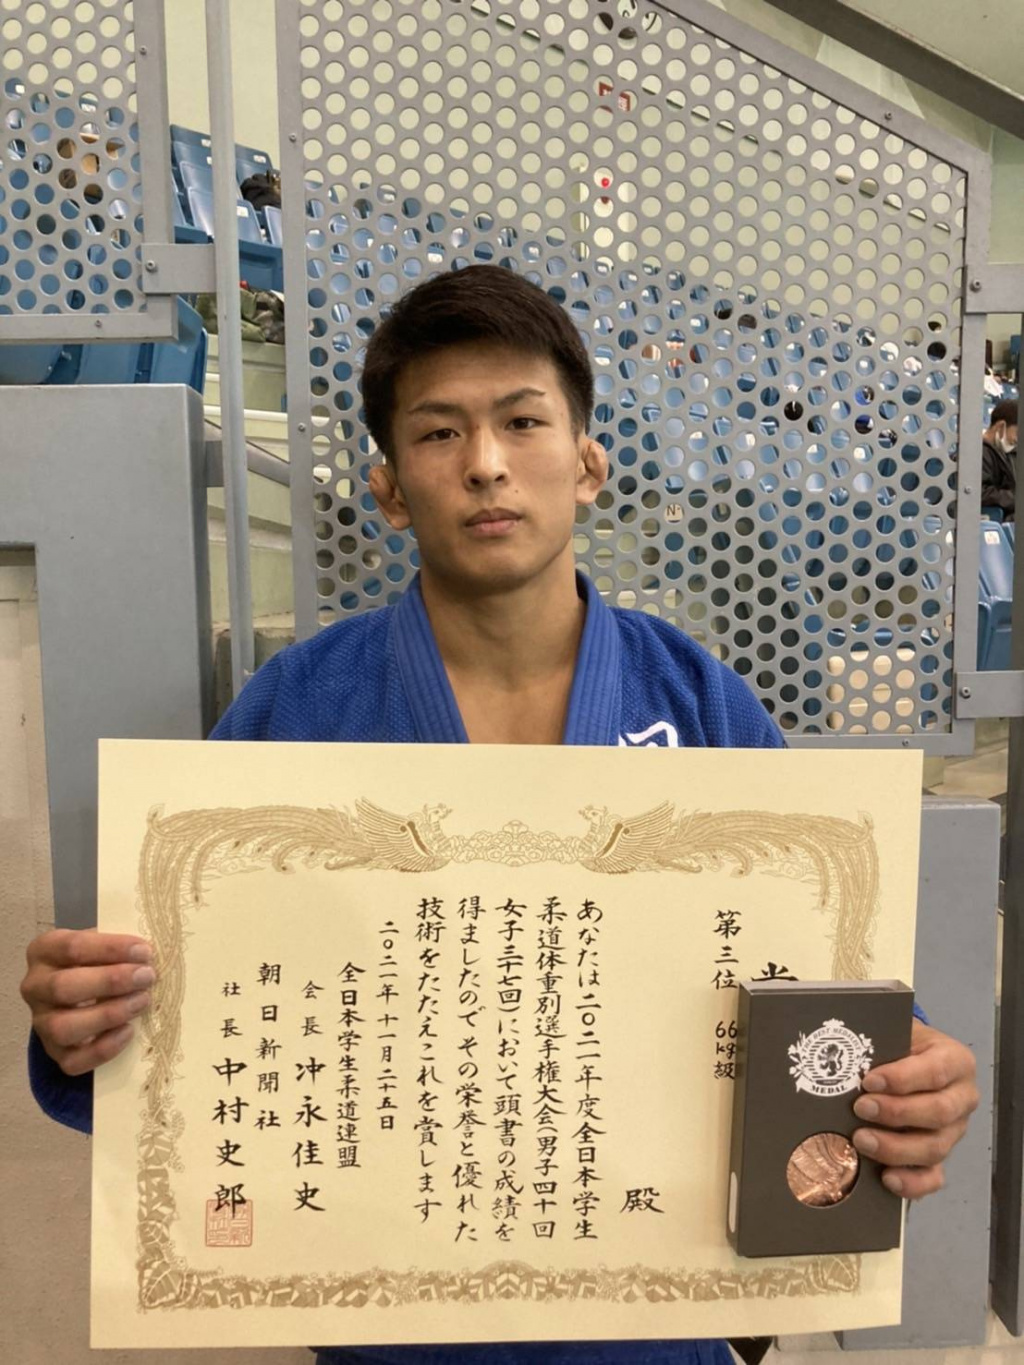 第三位 66kg級
殿
あなたは二〇二一年度全日本学生
柔道体重別選手権大会(男子四十回
女子三十七回)において頭書の成績を
得ましたのでその栄誉と優れた
技術をたたえこれを賞します
二〇二一年十一月二十五日
全日本学生柔道連盟
会長 冲永佳史
朝日新聞社
社長 中村史郎
BEST MEDAL
MEDAL